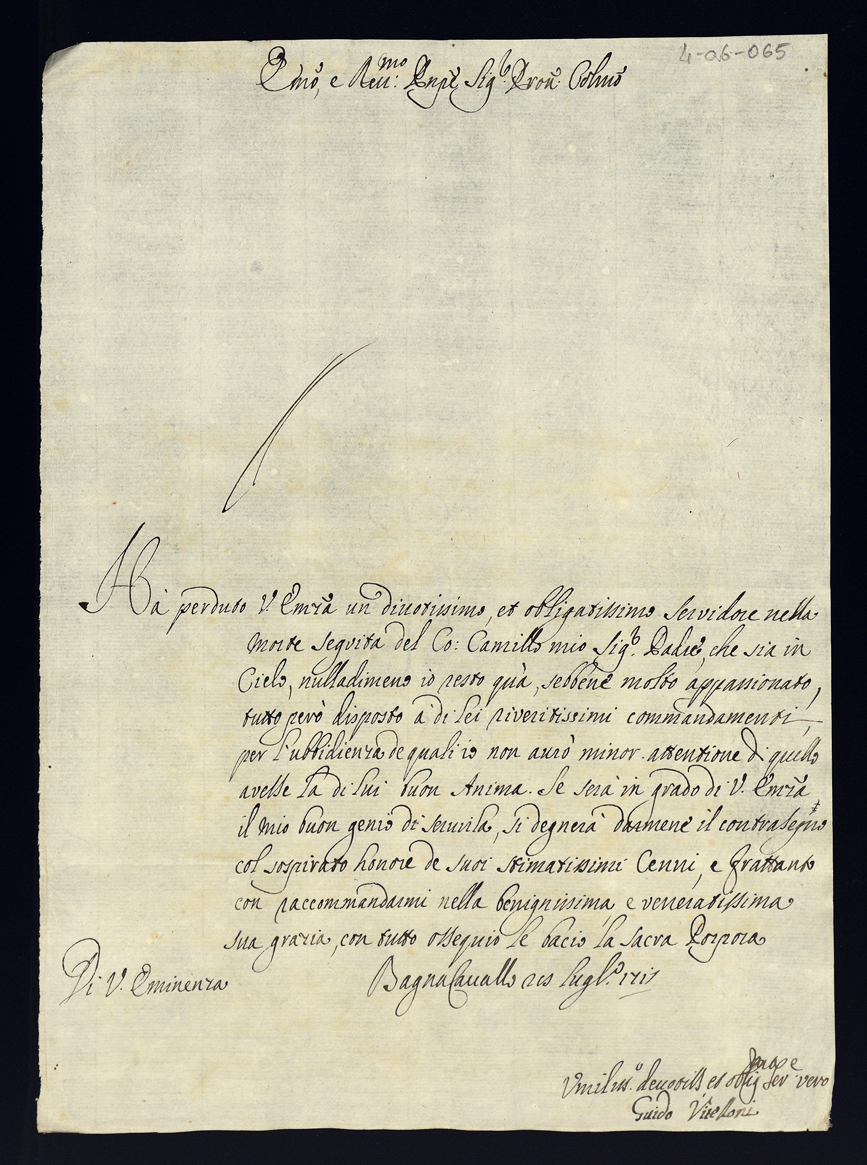 4-06-065
Emo, e Reu:mo Pnpe, Sigr. Pron Colmo
Hà perduto V. Emza un diuotissimo, et obligatissimo Servidore nella
morte seguita del Co: Camillo mio Sigr. Padre, che sia in
Cielo, nulladimeno io resto quà, sebbene molto appassionato,
tutto però disposto à di lei riveritissimi commandamenti,
per l'ubbidienza de quali io non aurò minor attentione di quello
avesse la di lui buon Anima. Se serà in grado di V. Emza
il mio buon genio di seruirla, si degnerà darmene il contrasegno
col sospirato honore de suoi stimatissimi Cenni, e frattanto
con raccommandarmi nella benignissima, e veneratissima
sua grazia, con tutto ossequio le bacio la Sacra Porpora
Di V. Eminenza Bagnacauallo Lugl.o 1717
Vmiliss.o deuotiss et oblig Ser vero
Guido